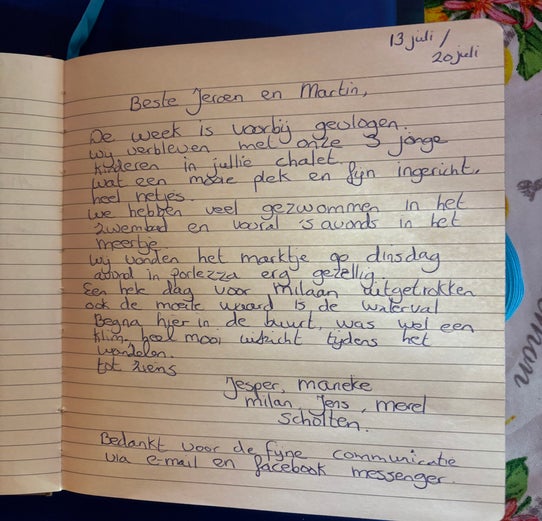 13 juli /
20 juli
Beste Jeroen en Martin,
De week is voorbij gevlogen.
Wij verbleven met onze 3 jonge
kinderen in jullie chalet.
wat een mooie plek en fijn ingericht,
heel netjes.
we hebben veel gezwommen in het
zwembad en vooral 's avonds in het
meertje.
Wij vonden het marktje op dinsdag
avond in porlezza erg gezellig.
Een hele dag voor milaan uitgetrokken
ook de moeite waard is de waterval
Begna hier in de buurt, was wel een
klim, heel mooi uitzicht tijdens het
wandelen.
tot ziens
Jesper, marieke
milan, Jens, merel
Scholten.
Bedankt voor de fijne communicatie
via e-mail en facebook messenger.